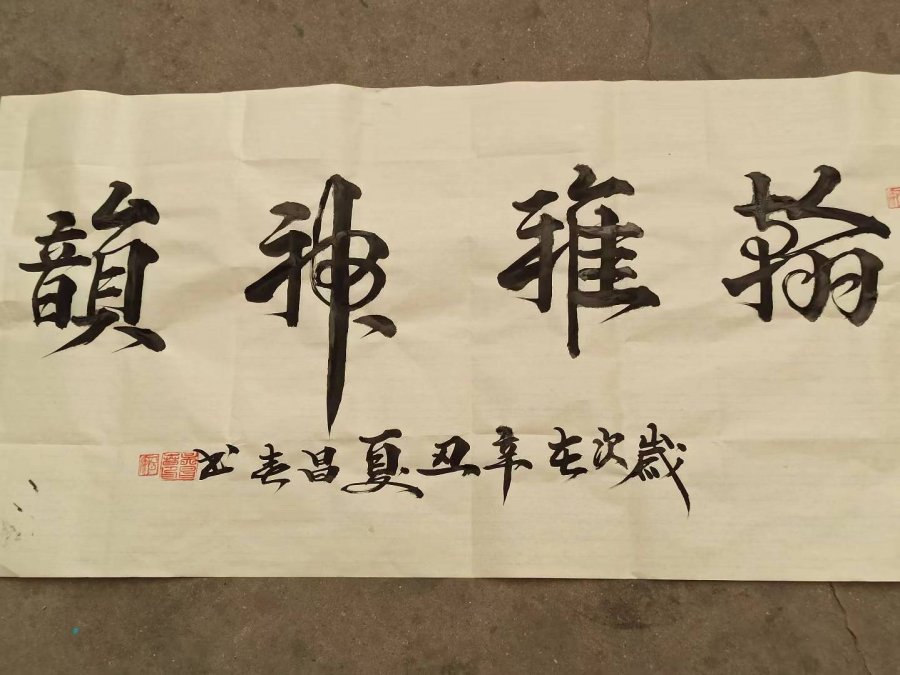 翰雅神韻
歲次在辛丑夏昌春书